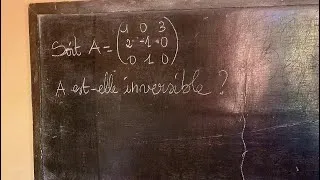 Soit A = (1 0 3
2 -1 0
0 1 0)
A est-elle inversible ?